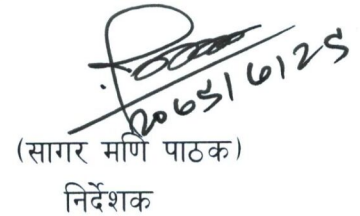 2065/6/25
(सागर मणि पाठक)
निर्देशक